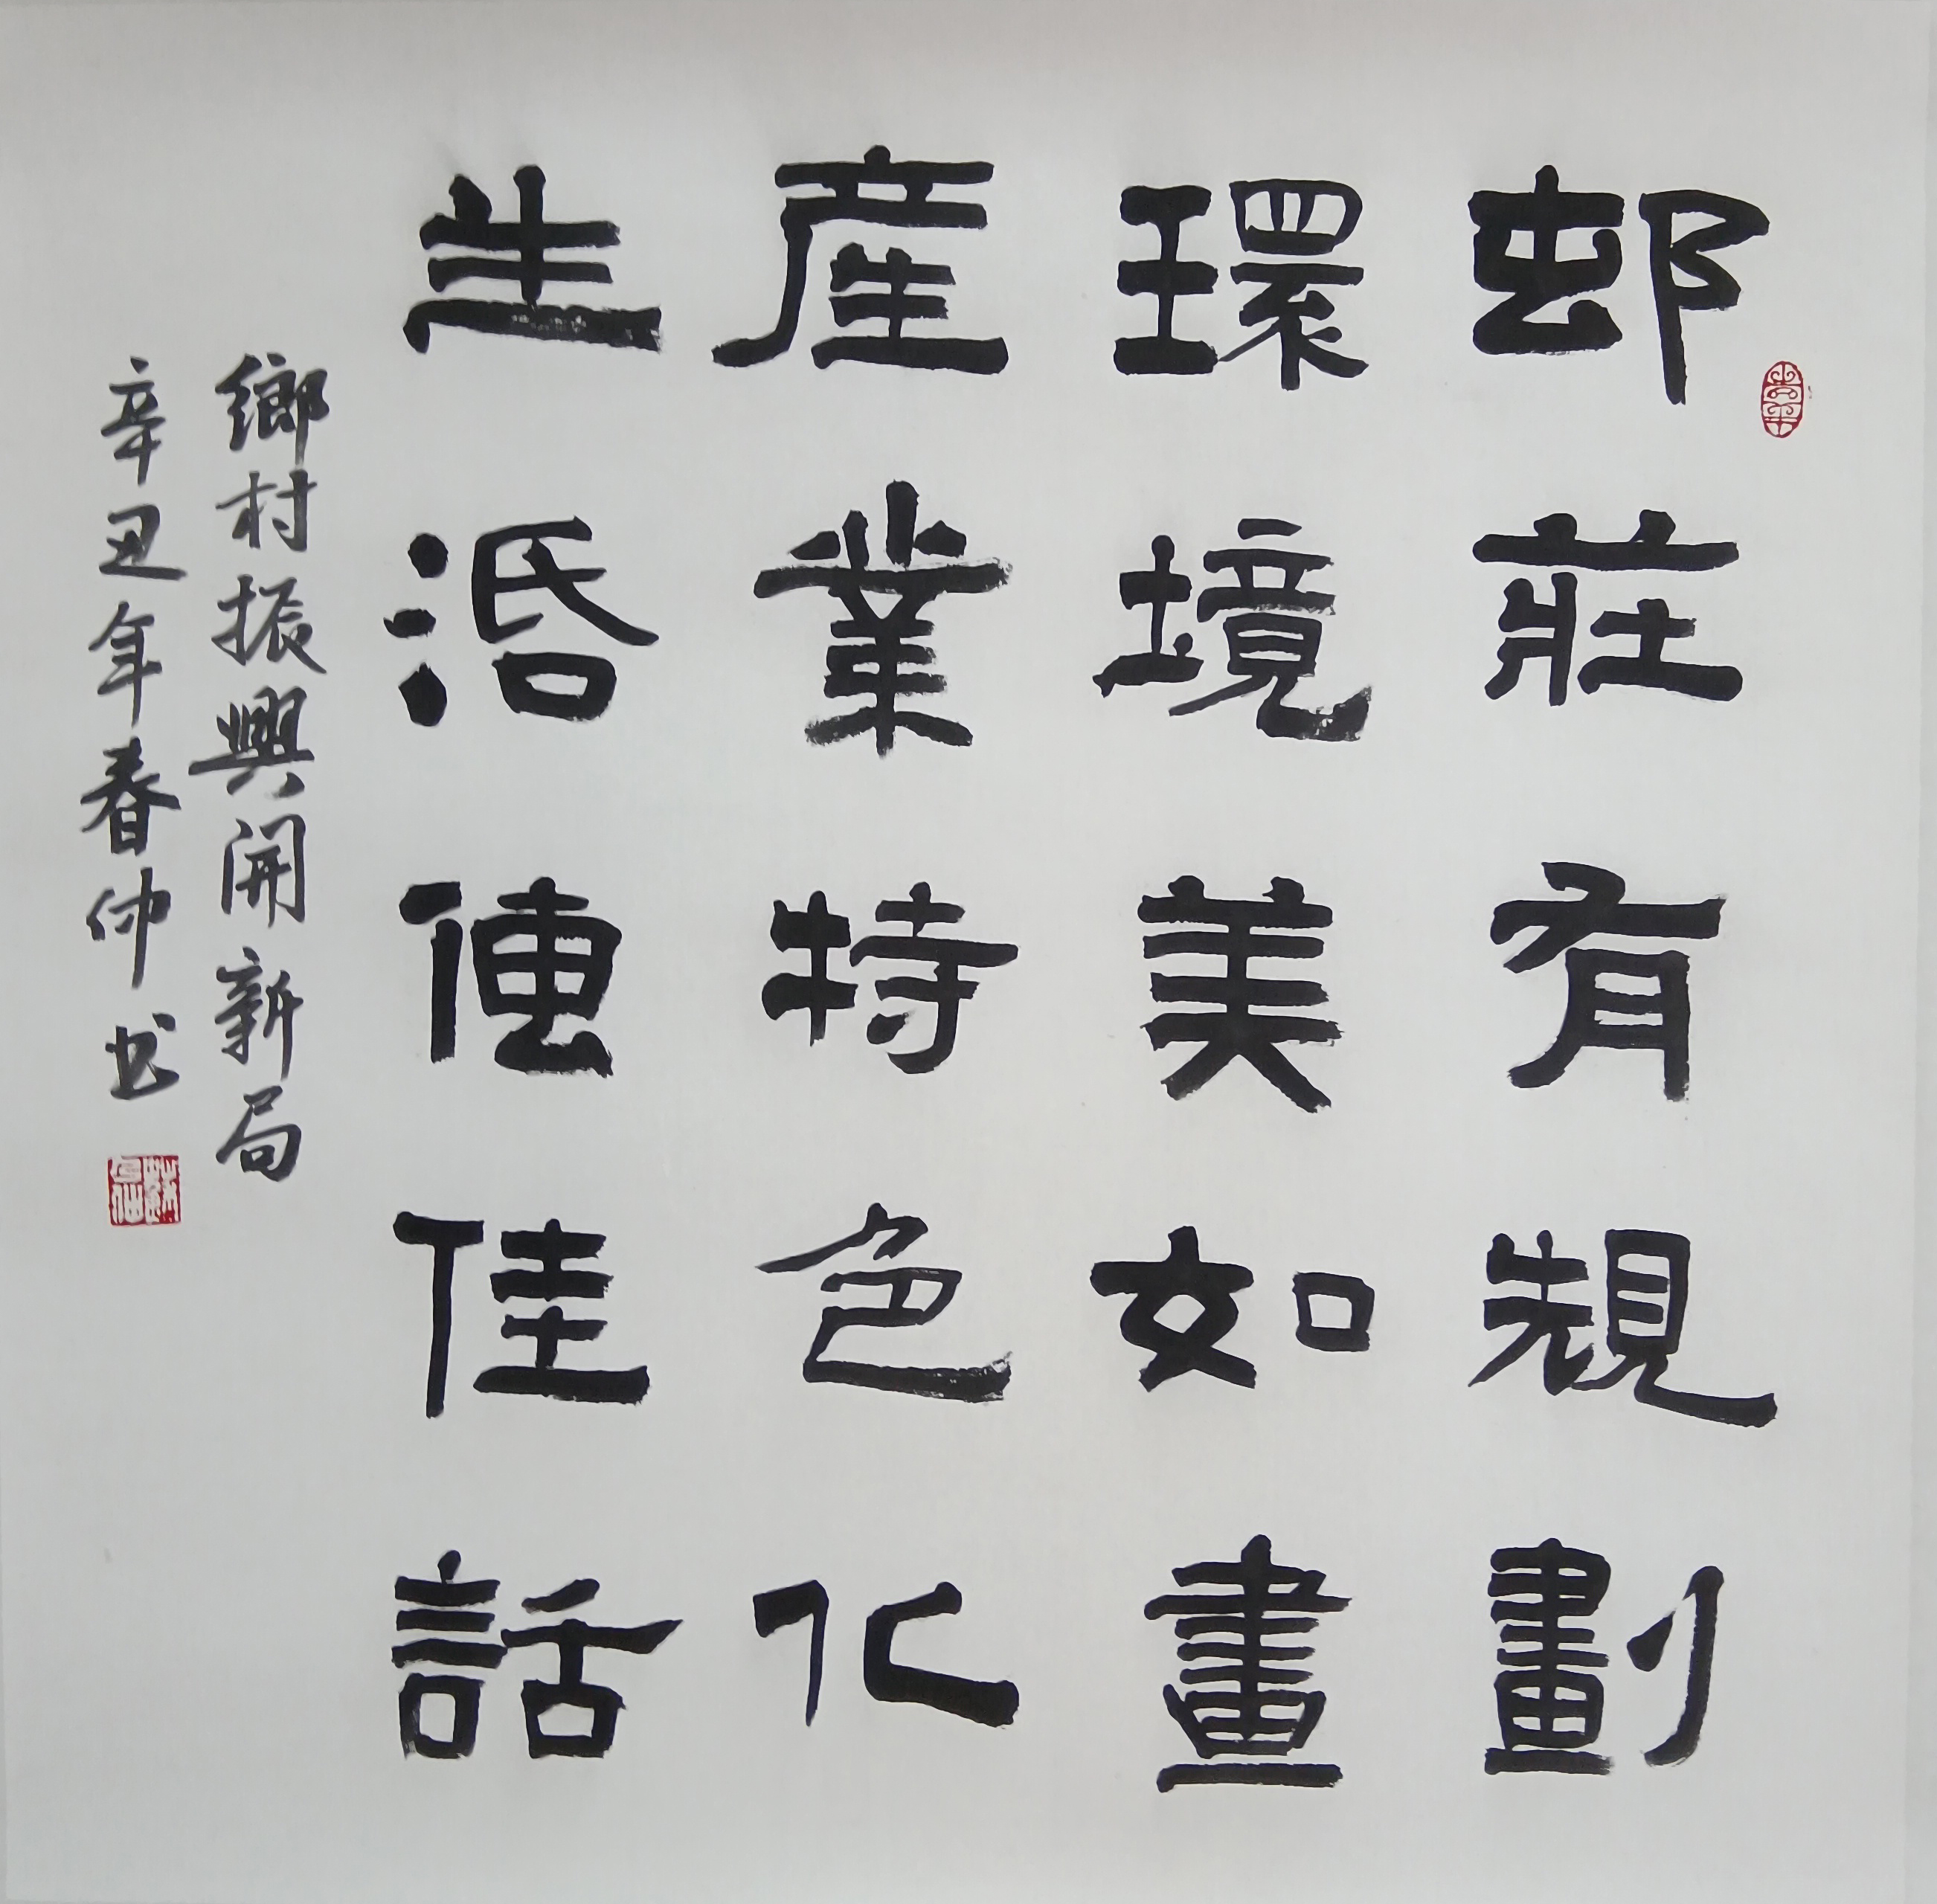 邨莊有規劃
環境美如畫
産業特色化
生活傳佳話
鄉村振興開新局
辛丑年春仲书